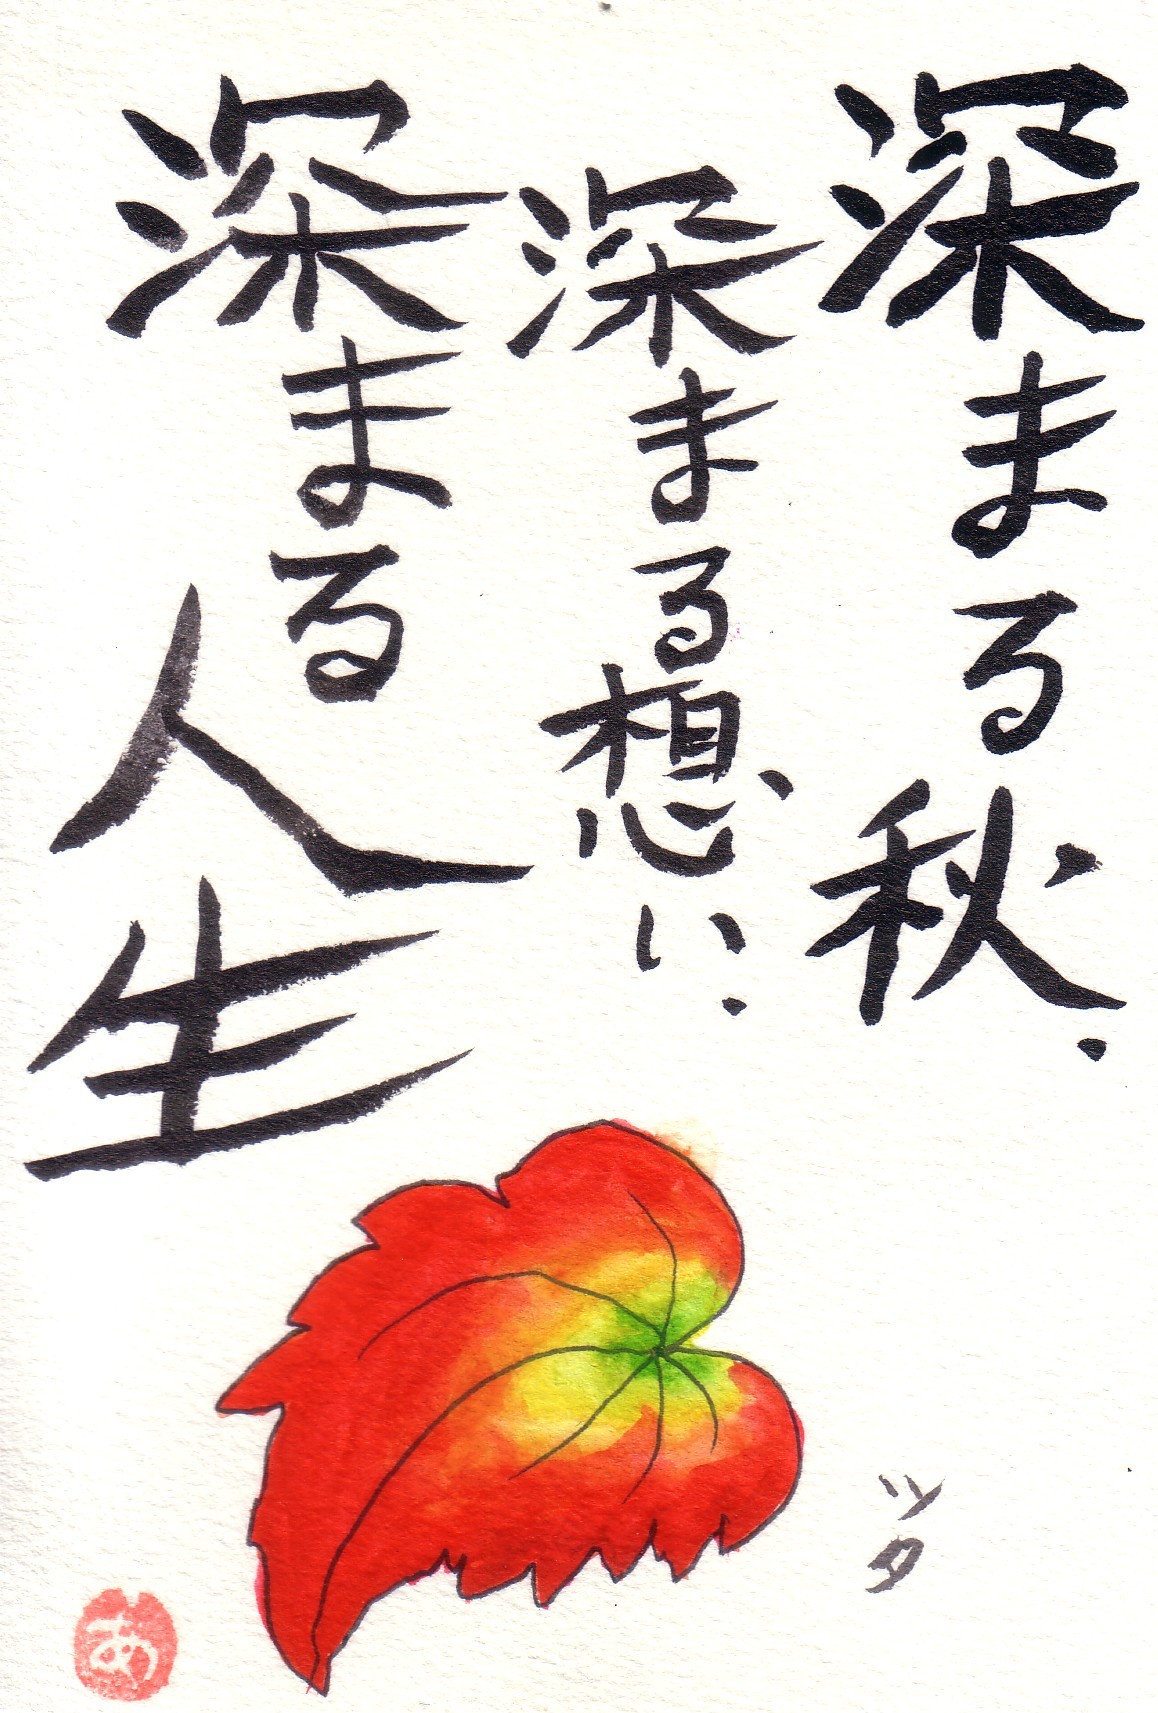 深まる秋.
深まる想い.
深まる人生
ツタ
あ